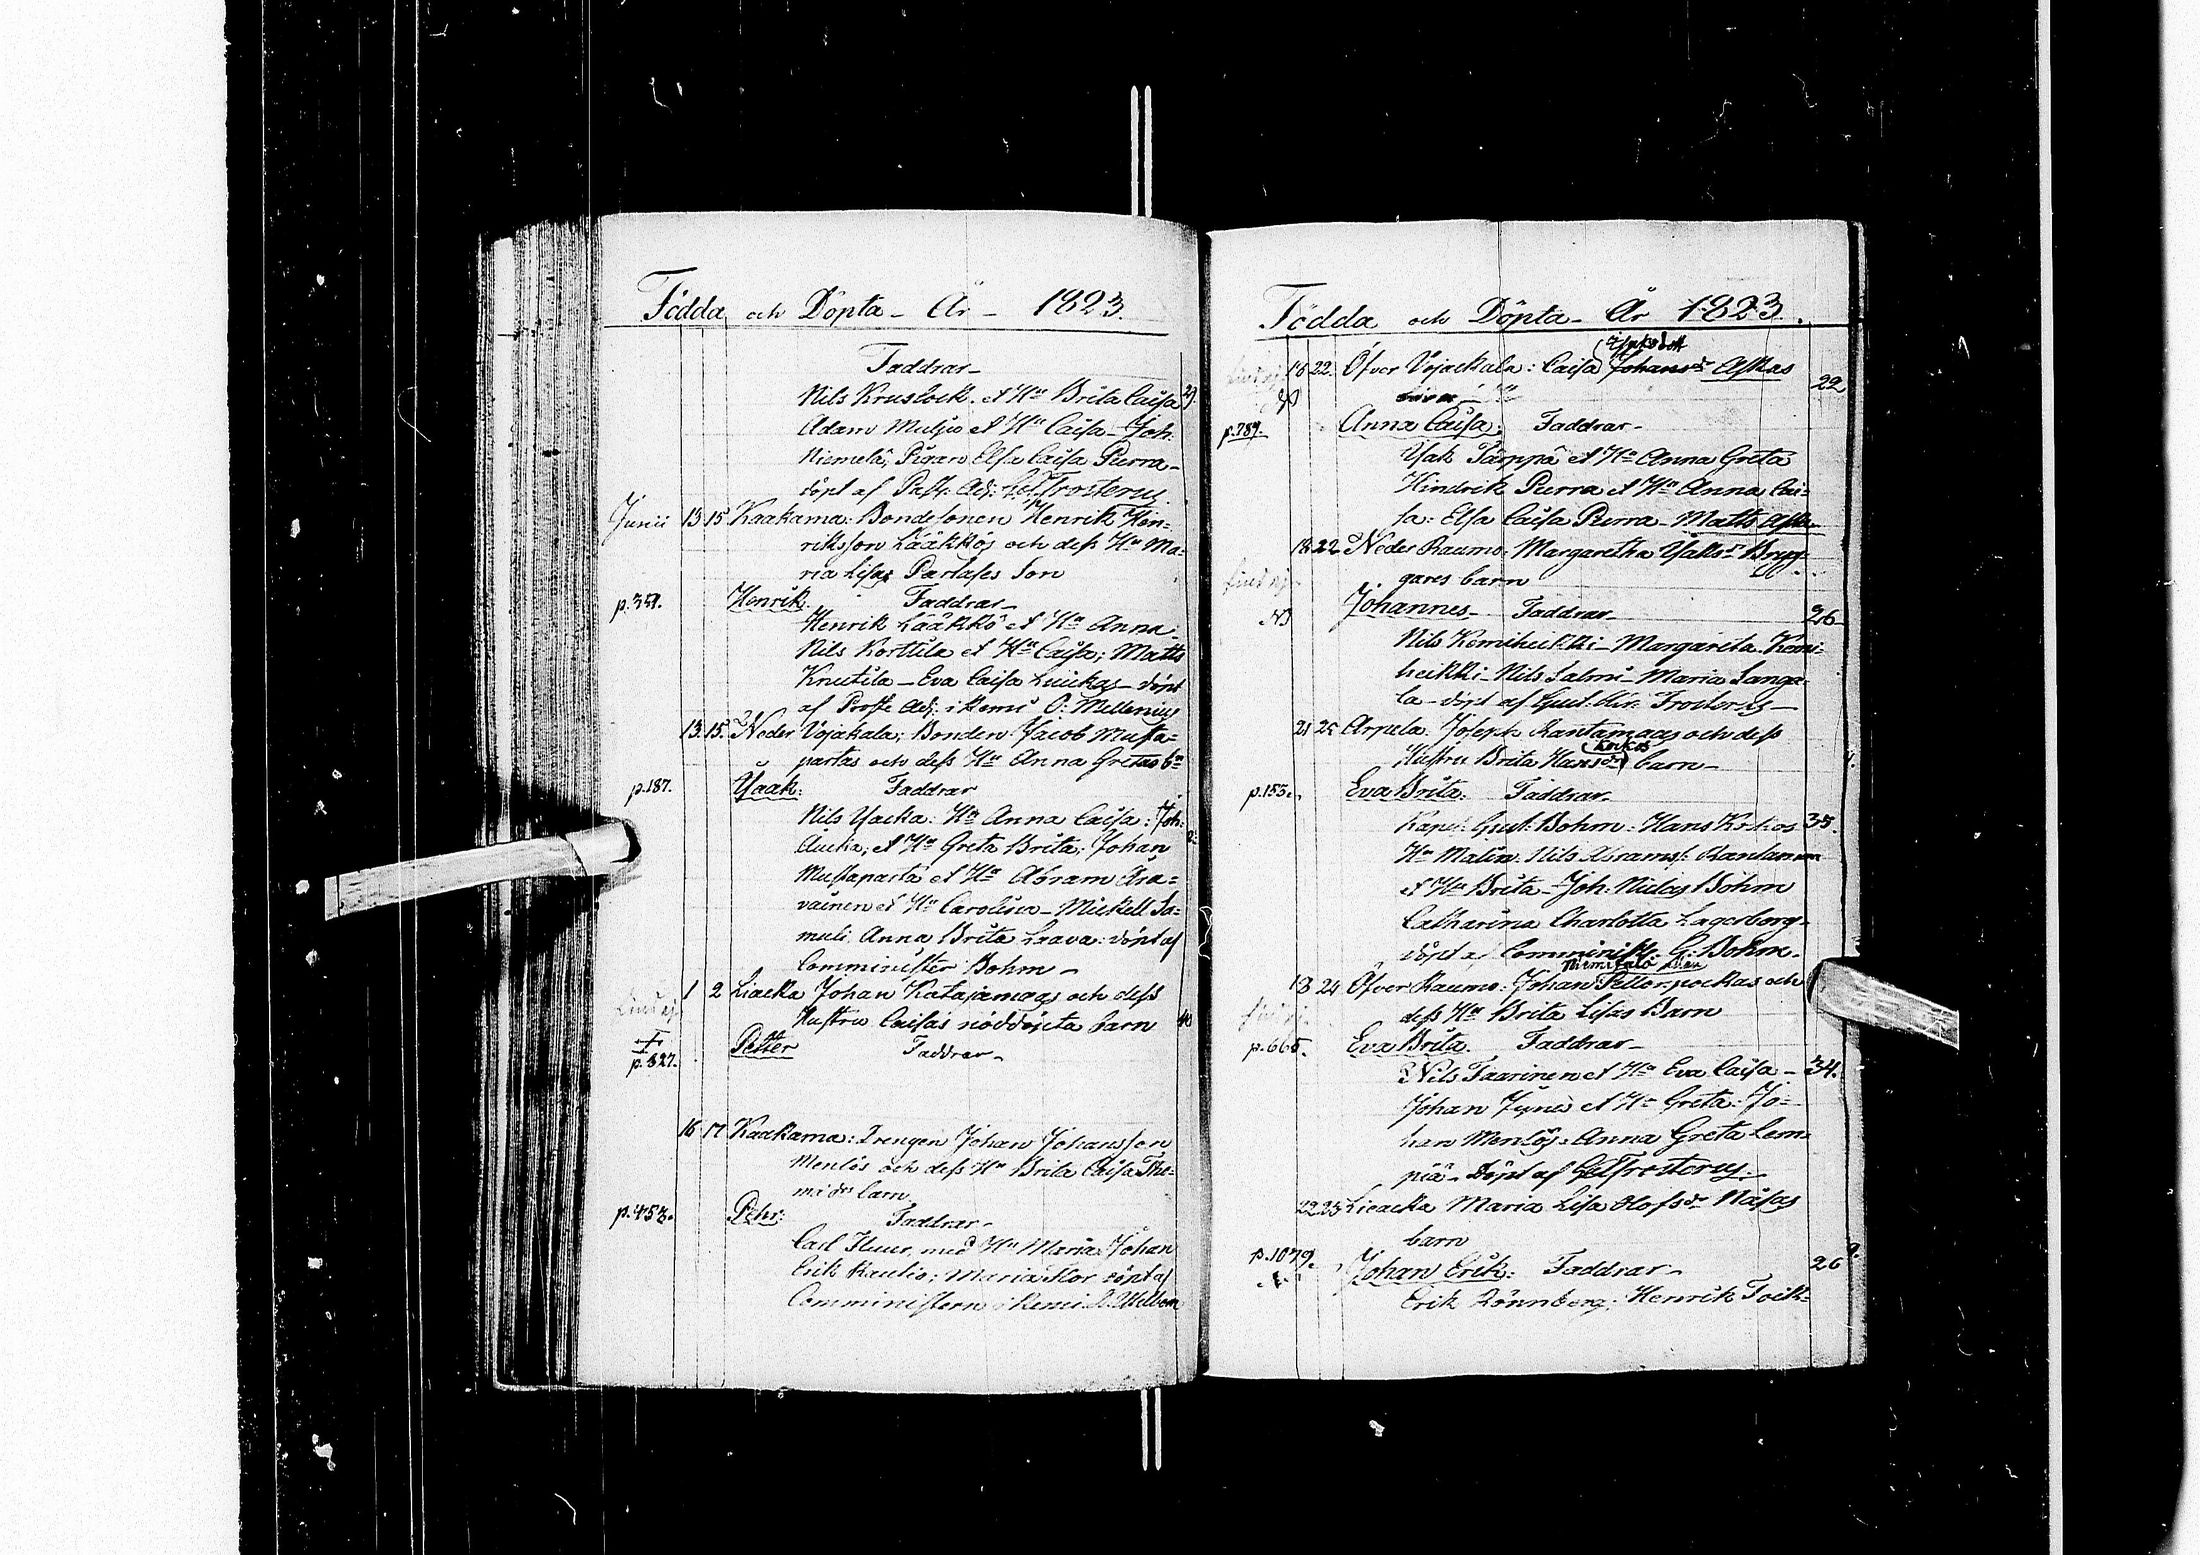 Födda och Döpta - År - 1823.
Faddrar -
Nils Kruslock. et Hu Brita Caisa
Adam et Hu Caisa - Joh.
Niemelä, Pigan Elsa Caisa Purra -
döpt af Past: Adj: Frosterus.
Junii 13 15 Kaakama: Bondesonen Henrik Hen=
riksson Lääkkös och dess Hu Ma=
ria Lisas Partases Son
p. 351. Henrik. Faddrar -
Henrik Lääkkö et Hu Anna
Nils Korttila et Hu Caisa; Matts
Knutila - Eva Caisa Luickas - döpt
af Adj: i Kemi O: Mellenius
13. 15. Neder Vojakala; Bonden Jacob Musta=
partas och dess Hu Anna Gretas bn
p. 187. Ysaak: Faddrar
Nils Yacka: Hu Anna Caisa: Joh:
et Hu Greta Brita; Johan
Mustaparta et Hu Abram Ara=
vainen et Hu Carolina - Mickell Sa=
muli Anna Brita Laava: döpt af
Comminister Bohm -
1 2 Liacka Johan Katajamaas och dess
Hustru Caisas nöddöpta barn 40
p. 827. Petter Faddrar -
16 17 Kaakama: Drengen Johan Johansson
Menlös och dess Hu Brita Caisa Tho=
mæ dr barn
p. 453. Pehr: Faddrar -
Carl med Hu Maria Johan
Erik Rautio; Maria Kor döpt af
Comministern i Kemi
Födda och Döpta - År 1823.
18 22. Öfver Vojackala: Caisa Johansdr Askas
22
p. 789. Anna Caisa; Faddrar -
Ysak Tämppä et Hu Anna Greta
Hindrik Purra et Hu Anna Cai=
sa: Elsa Caisa Purra - Matts Aska
18 22 Neder Raumo: Margaretha Ysaksdr Bryg=
gares barn
Johannes - Faddrar - 26
Nils Kemiheikki - Margareta Kemi=
heikki - Nils Salmi - Maria Langa=
la - döpt af Gust. Frosterus -
21 25 Arpela Joseph Rantamaas och dess
Kockos
Hustru Brita Hansdr barn -
p. 153. Eva Brita: Faddrar -
Kapel: Gust: Bohm: Hans Kockos 35.
Hu Malin: Nils Abramss: Rantamaa
et Hu Brita - Joh: Niclas Bohm
Catharina Charlotta Lagerborg -
döpt af Comminist: G: Bohm.
18 24 Öfver Raumo: Johan Petterpockas och
dess Hu Brita Lisas Barn
p. 665. Eva Brita. Faddrar -
Nils Taarinen et Hu Eva Caisa - 34.
Johan et Hu Greta: Jo=
han Menlös. Anna Greta Lem=
piä - Döpt af Frosterus.
22 23 Lieacka Maria Lisa Olofsdr Näsas
barn
p. 1079. Johan Erik: Faddrar - 26
Erik Rönnberg; Henrik Toik=